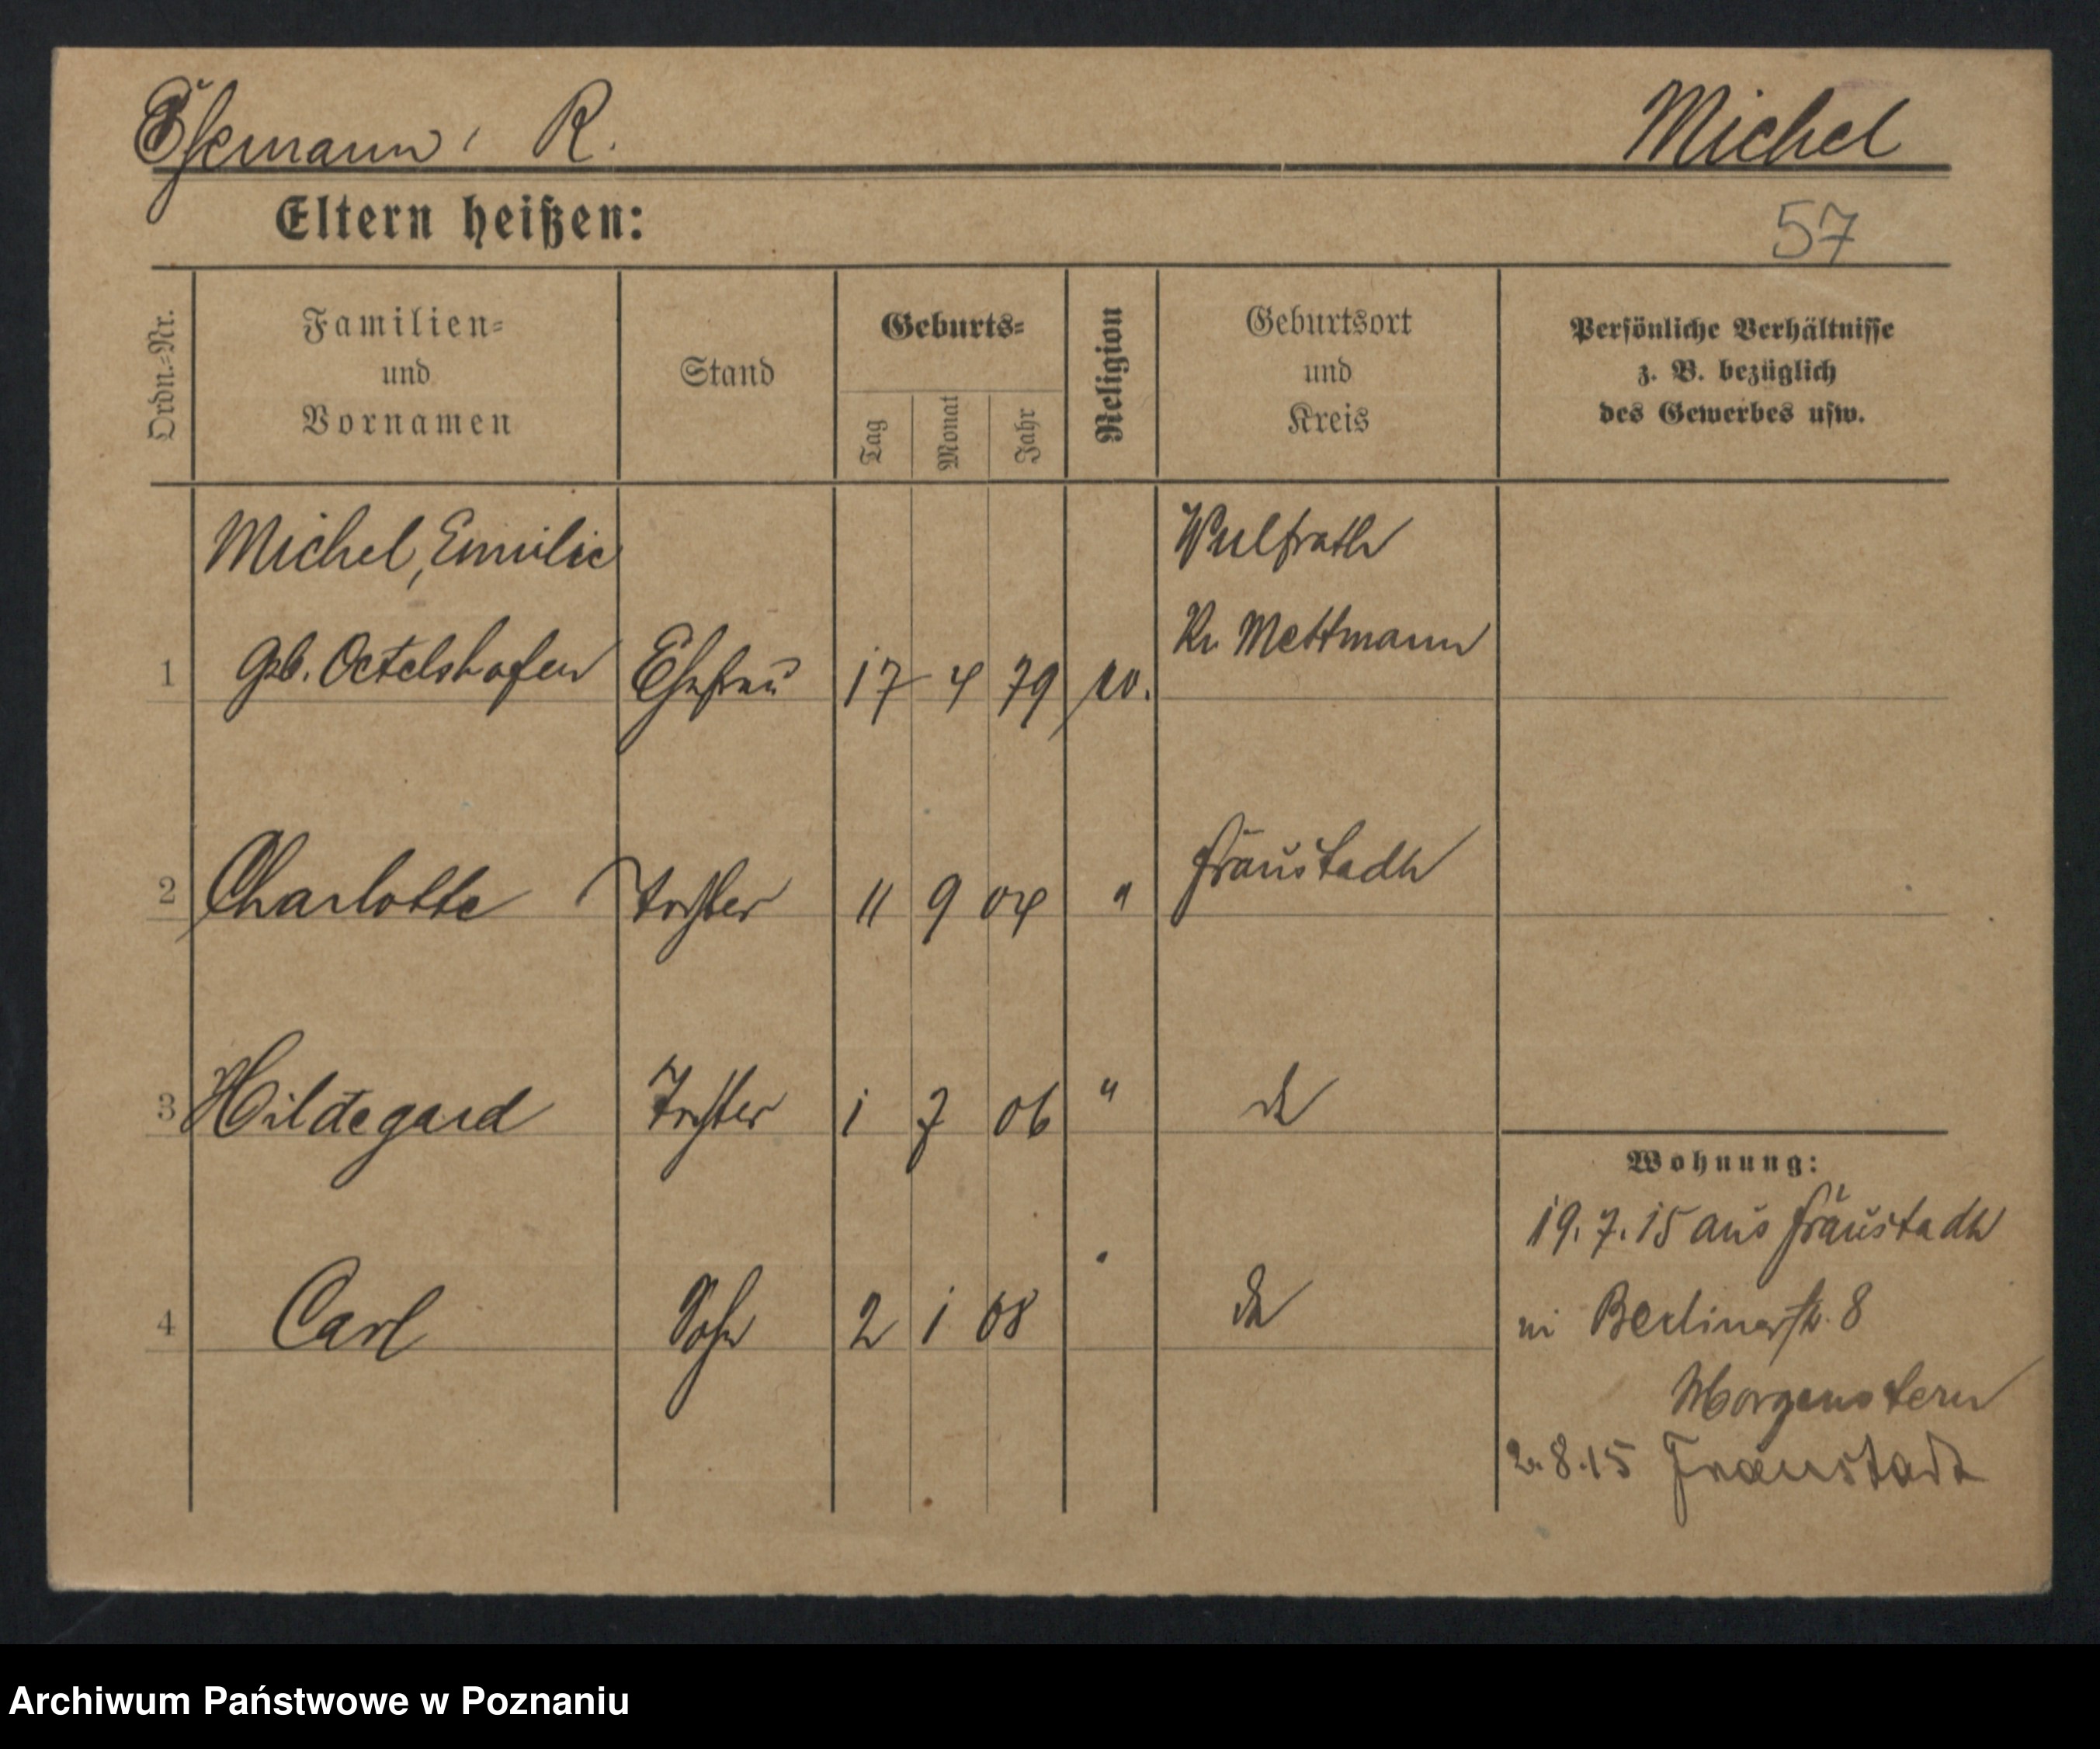 Ehemann: R. Michel
Eltern heißen: 57
Ordn.-Nr.
Familien-
und
Vornamen
Stand
Geburts-
Tag
Monat
Jahr
Religion
Geburtsort
und
Kreis
Persönliche Verhältnisse
z. B. bezüglich
des Gewerbes usw.
Michel, Emilie Wulfrath
Kr. Mettmann
1 geb. Oetelshofen Ehefrau 17 4 79 ev.
2 Charlotte Tochter 11 9 04 " Fraustadt
3 Hildegard Tochter 1 7 06 " do
4 Carl Sohn 2 1 08 do
Wohnung:
19. 7. 15 aus Fraustadt
Berlinerstr. 8
Morgenstern
2. 8. 15 Fraustadt
Archiwum Państwowe w Poznaniu